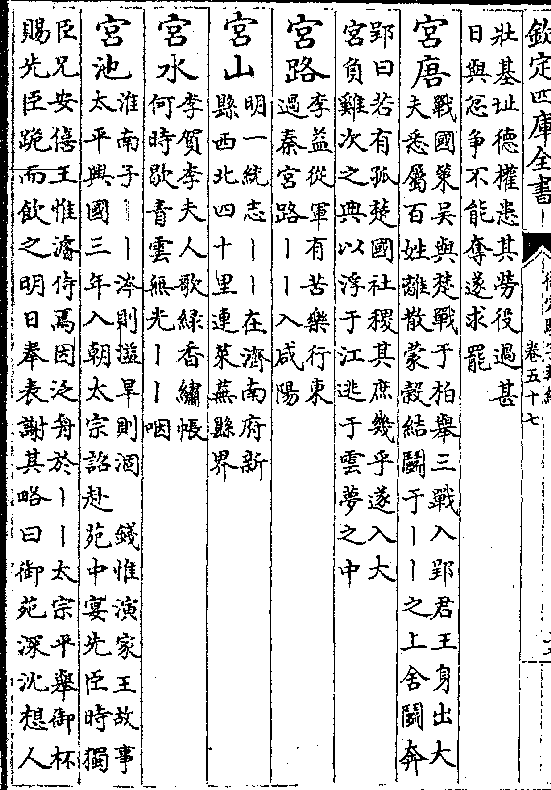 欽定四庫全書
卷五十七
壯基址德權患其勞役過甚
日與忿争不能奪遂求罷
宫唐
戰國策吳與楚戰于柏舉三戰入郢君王身出大
夫悉屬百姓離散蒙穀結鬭于丨丨之上舍鬭奔
郢曰若有孤楚國社稷其庶幾乎遂入大
宫負雞次之典以浮于江逃于雲夢之中
宫路
李益從軍有苦樂行東
過秦宫路丨丨入咸陽
宫山
明一統志丨丨在濟南府新
縣西北四十里連萊蕪縣界
宫水
李賀李夫人歌綠香繡帳
何時歇青雲無光丨丨咽
宫池
淮南子丨丨涔則溢旱則涸 錢惟演家王故事
太平興國三年入朝太宗詔赴苑中宴先臣時獨
臣兄安僖王惟濬侍焉因泛舟於丨丨太宗手舉御杯
賜先臣跪而飲之明日奉表謝其略曰御苑深沈想人